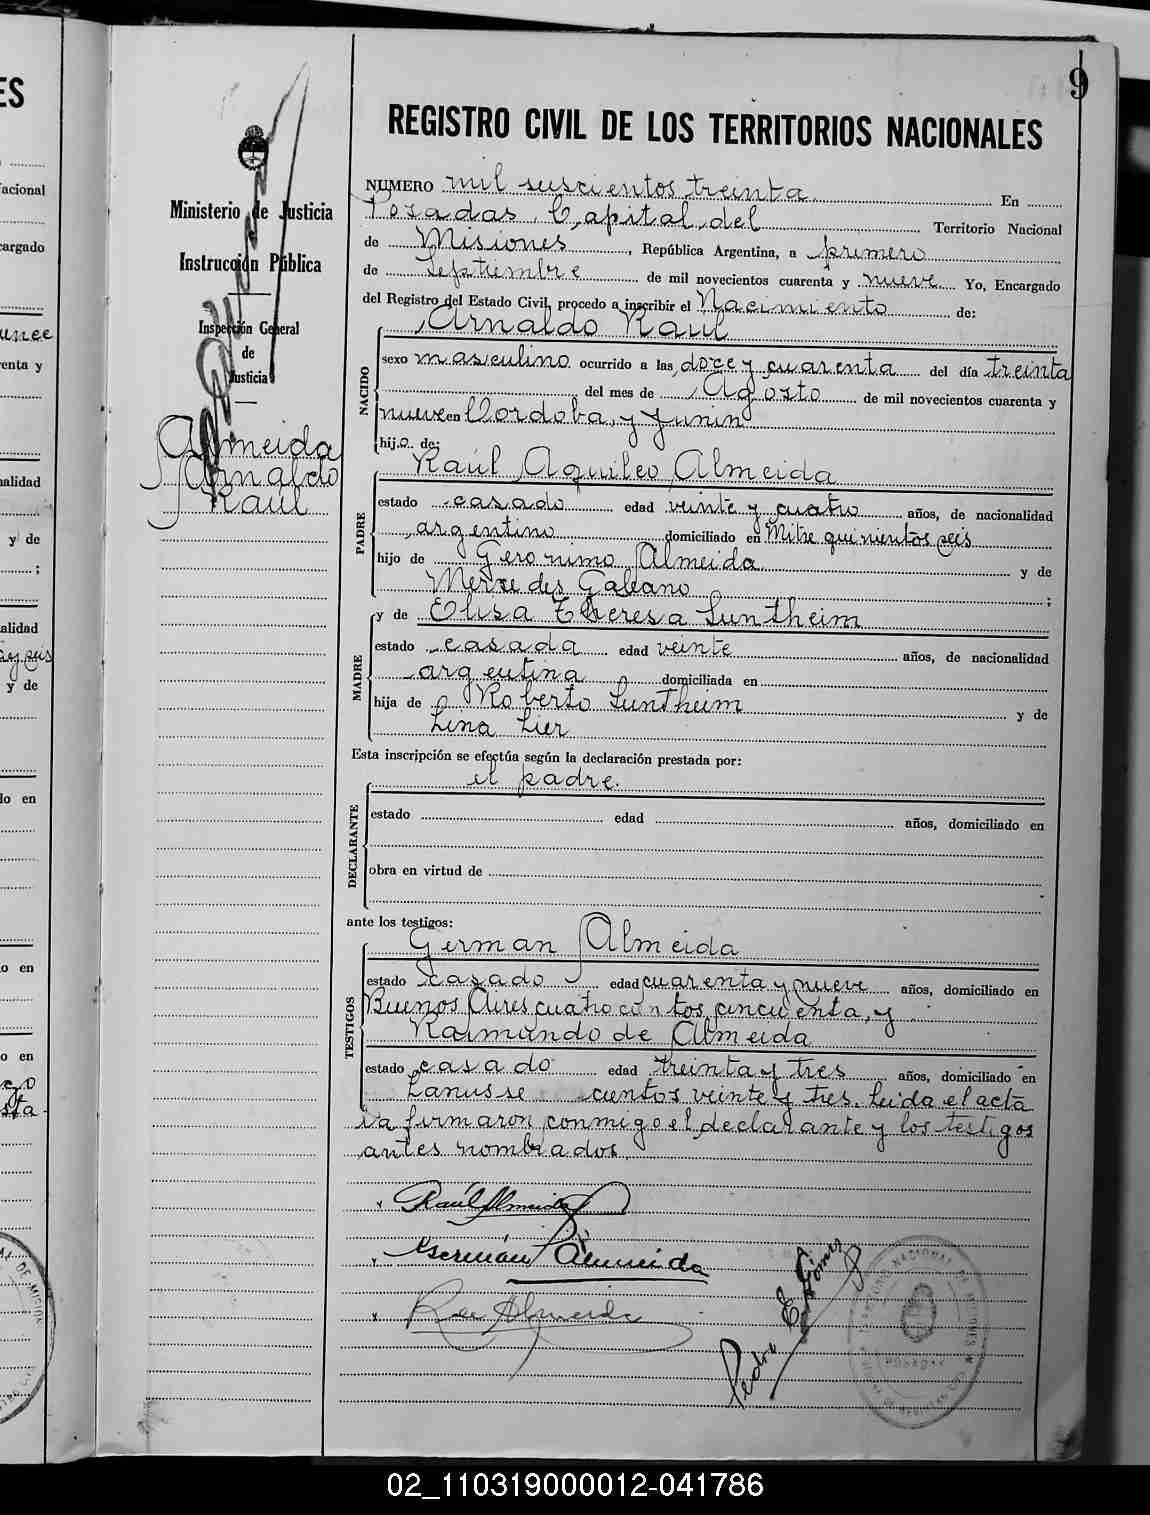 ES
9
REGISTRO CIVIL DE LOS TERRITORIOS NACIONALES
acional
argado
enta y
alidad
y de
;
alidad
y de
do en
o en
o en
Ministerio de Justicia
Instrucción Pública
Inspección General
de
Justicia
Almeida
Arnaldo
Raúl
NUMERO mil suscientos treinta En
Posadas, Capital del Territorio Nacional
de Misiones, República Argentina, a primero
de Septiembre de mil novecientos cuarenta y nueve Yo, Encargado
del Registro del Estado Civil, procedo a inscribir el Nacimiento de:
NACIDO
Arnaldo Raúl
sexo masculino ocurrido a las doce y cuarenta del día treinta
del mes de Agosto de mil novecientos cuarenta y
nueve en Cordoba, y Junin
hijo de:
PADRE
Raúl Aquileo Almeida
estado casado edad veinte y cuatro años, de nacionalidad
argentino domiciliado en Mitre quinientos seis
hijo de Geronimo Almeida y de
Mercedes Galeano ;
MADRE
y de Elisa Theresa Suntheim
estado casada edad veinte años, de nacionalidad
argentina domiciliada en
hija de Roberto Suntheim y de
Lina Lier
Esta inscripción se efectúa según la declaración prestada por:
el padre.
DECLARANTE
estado edad años, domiciliado en
obra en virtud de
ante los testigos:
TESTIGOS
German Almeida
estado casado edad cuarenta y nueve años, domiciliado en
Buenos Aires cuatrocientos cincuenta, y
Raimundo de Almeida
estado casado edad treinta y tres años, domiciliado en
Lanus se cientos veinte y tres. Leida el acta
la firmaron conmigo el declarante y los testigos
antes nombrados.
Raúl Almeida
Germán Almeida
Almeida
Pedro E. Gómez
02_110319000012-041786